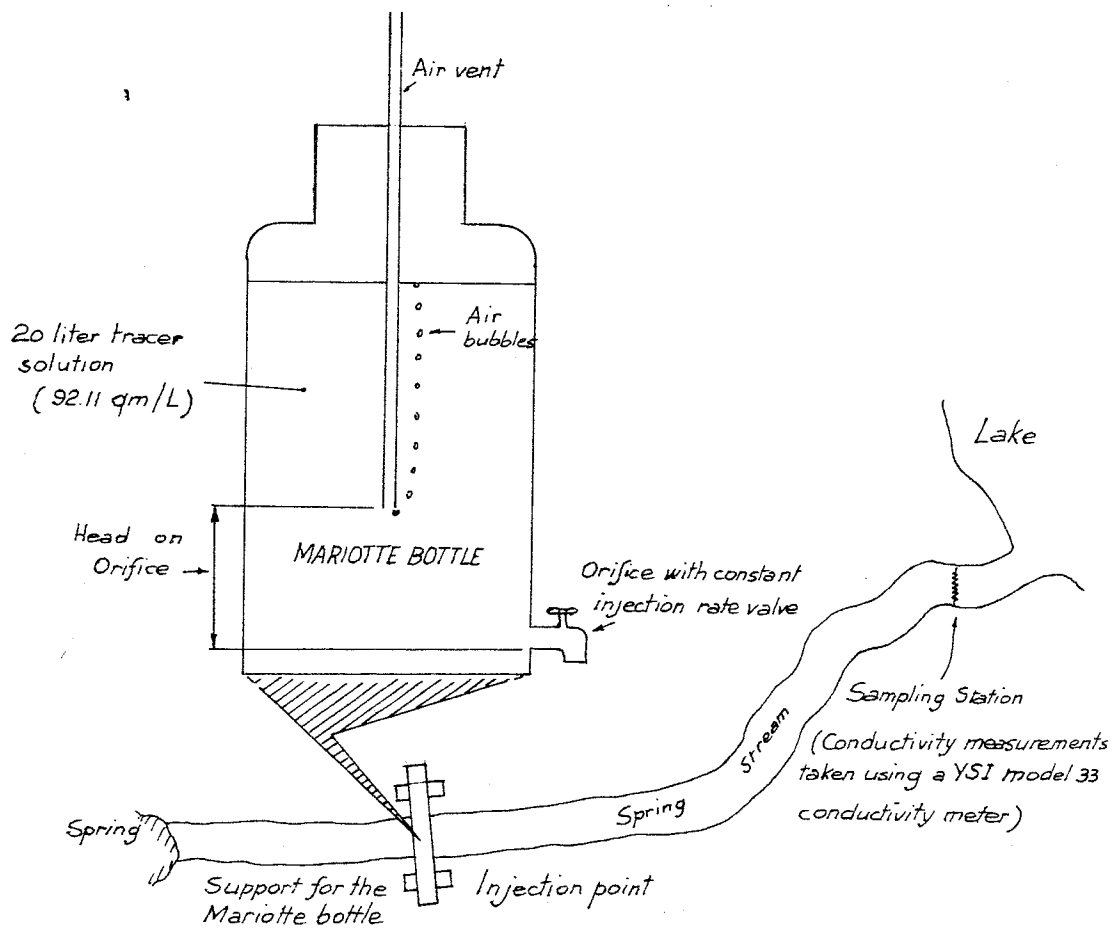 Air vent
20 liter tracer
solution
(92.11 qm/L)
Air
bubbles
Lake
Head on
Orifice
MARIOTTE BOTTLE
Orifice with constant
injection rate valve
Sampling Station
(Conductivity measurements
taken using a YSI model 33
conductivity meter)
Spring
Spring
Stream
Support for the
Mariotte bottle
Injection point